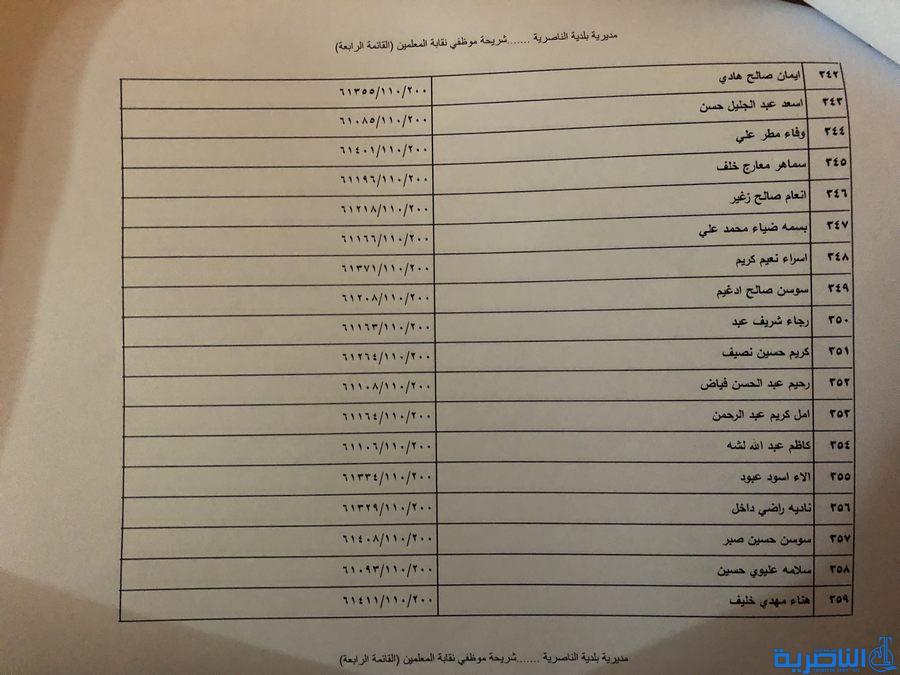 مديرية بلدية الناصرية .......شريحة موظفي نقابة المعلمين (القائمة الرابعة)
٣٤٢ ايمان صالح هادي ٦١٣٥٥/١١٠/٢٠٠
٣٤٣ اسعد عبد الجليل حسن ٦١٠٨٥/١١٠/٢٠٠
٣٤٤ وفاء مطر علي ٦١٤٠١/١١٠/٢٠٠
٣٤٥ سماهر معارج خلف ٦١١٩٦/١١٠/٢٠٠
٣٤٦ انعام صالح زغير ٦١٢١٨/١١٠/٢٠٠
٣٤٧ بسمه ضياء محمد علي ٦١١٦٦/١١٠/٢٠٠
٣٤٨ اسراء نعيم كريم ٦١٣٧١/١١٠/٢٠٠
٣٤٩ سوسن صالح ادغيم ٦١٢٠٨/١١٠/٢٠٠
٣٥٠ رجاء شريف عبد ٦١١٦٣/١١٠/٢٠٠
٣٥١ كريم حسين نصيف ٦١٢٦٤/١١٠/٢٠٠
٣٥٢ رحيم عبد الحسن فياض ٦١١٠٨/١١٠/٢٠٠
٣٥٣ امل كريم عبد الرحمن ٦١١٦٤/١١٠/٢٠٠
٣٥٤ كاظم عبد الله لشه ٦١١٠٦/١١٠/٢٠٠
٣٥٥ الاء اسود عبود ٦١٣٣٤/١١٠/٢٠٠
٣٥٦ ناديه راضي داخل ٦١٣٢٩/١١٠/٢٠٠
٣٥٧ سوسن حسين صبر ٦١٤٠٨/١١٠/٢٠٠
٣٥٨ سلامه عليوي حسين ٦١٠٩٣/١١٠/٢٠٠
٣٥٩ هناء مهدي خليف ٦١٤١١/١١٠/٢٠٠
مديرية بلدية الناصرية .......شريحة موظفي نقابة المعلمين (القائمة الرابعة)
الناصرية